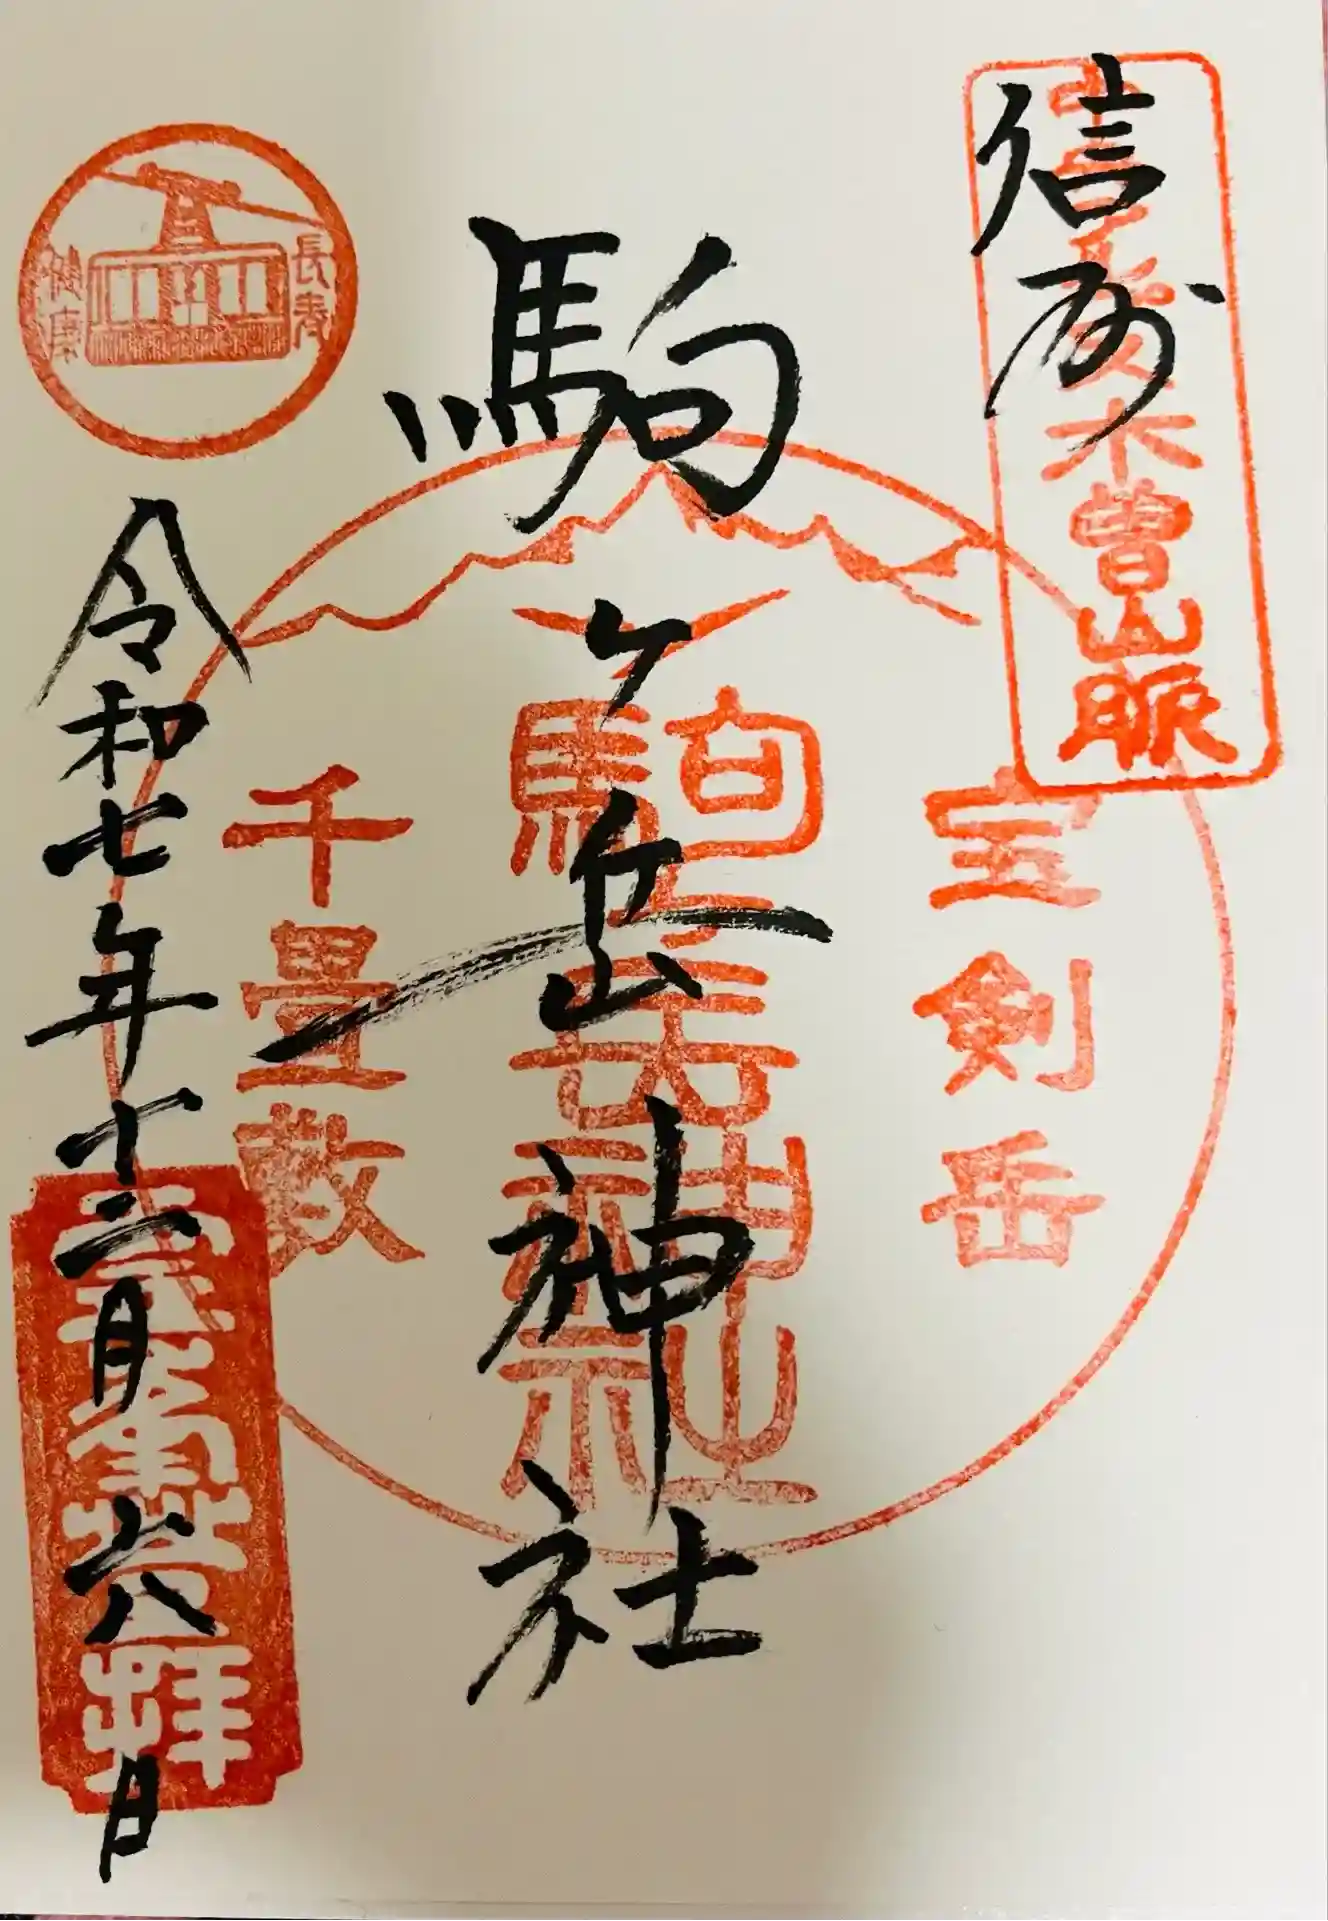 信州
中央アルプス木曽山脈
宝剣岳
駒ヶ岳神社
駒ヶ岳神社
千畳敷
長寿
健康
令和七年十二月六日
拝